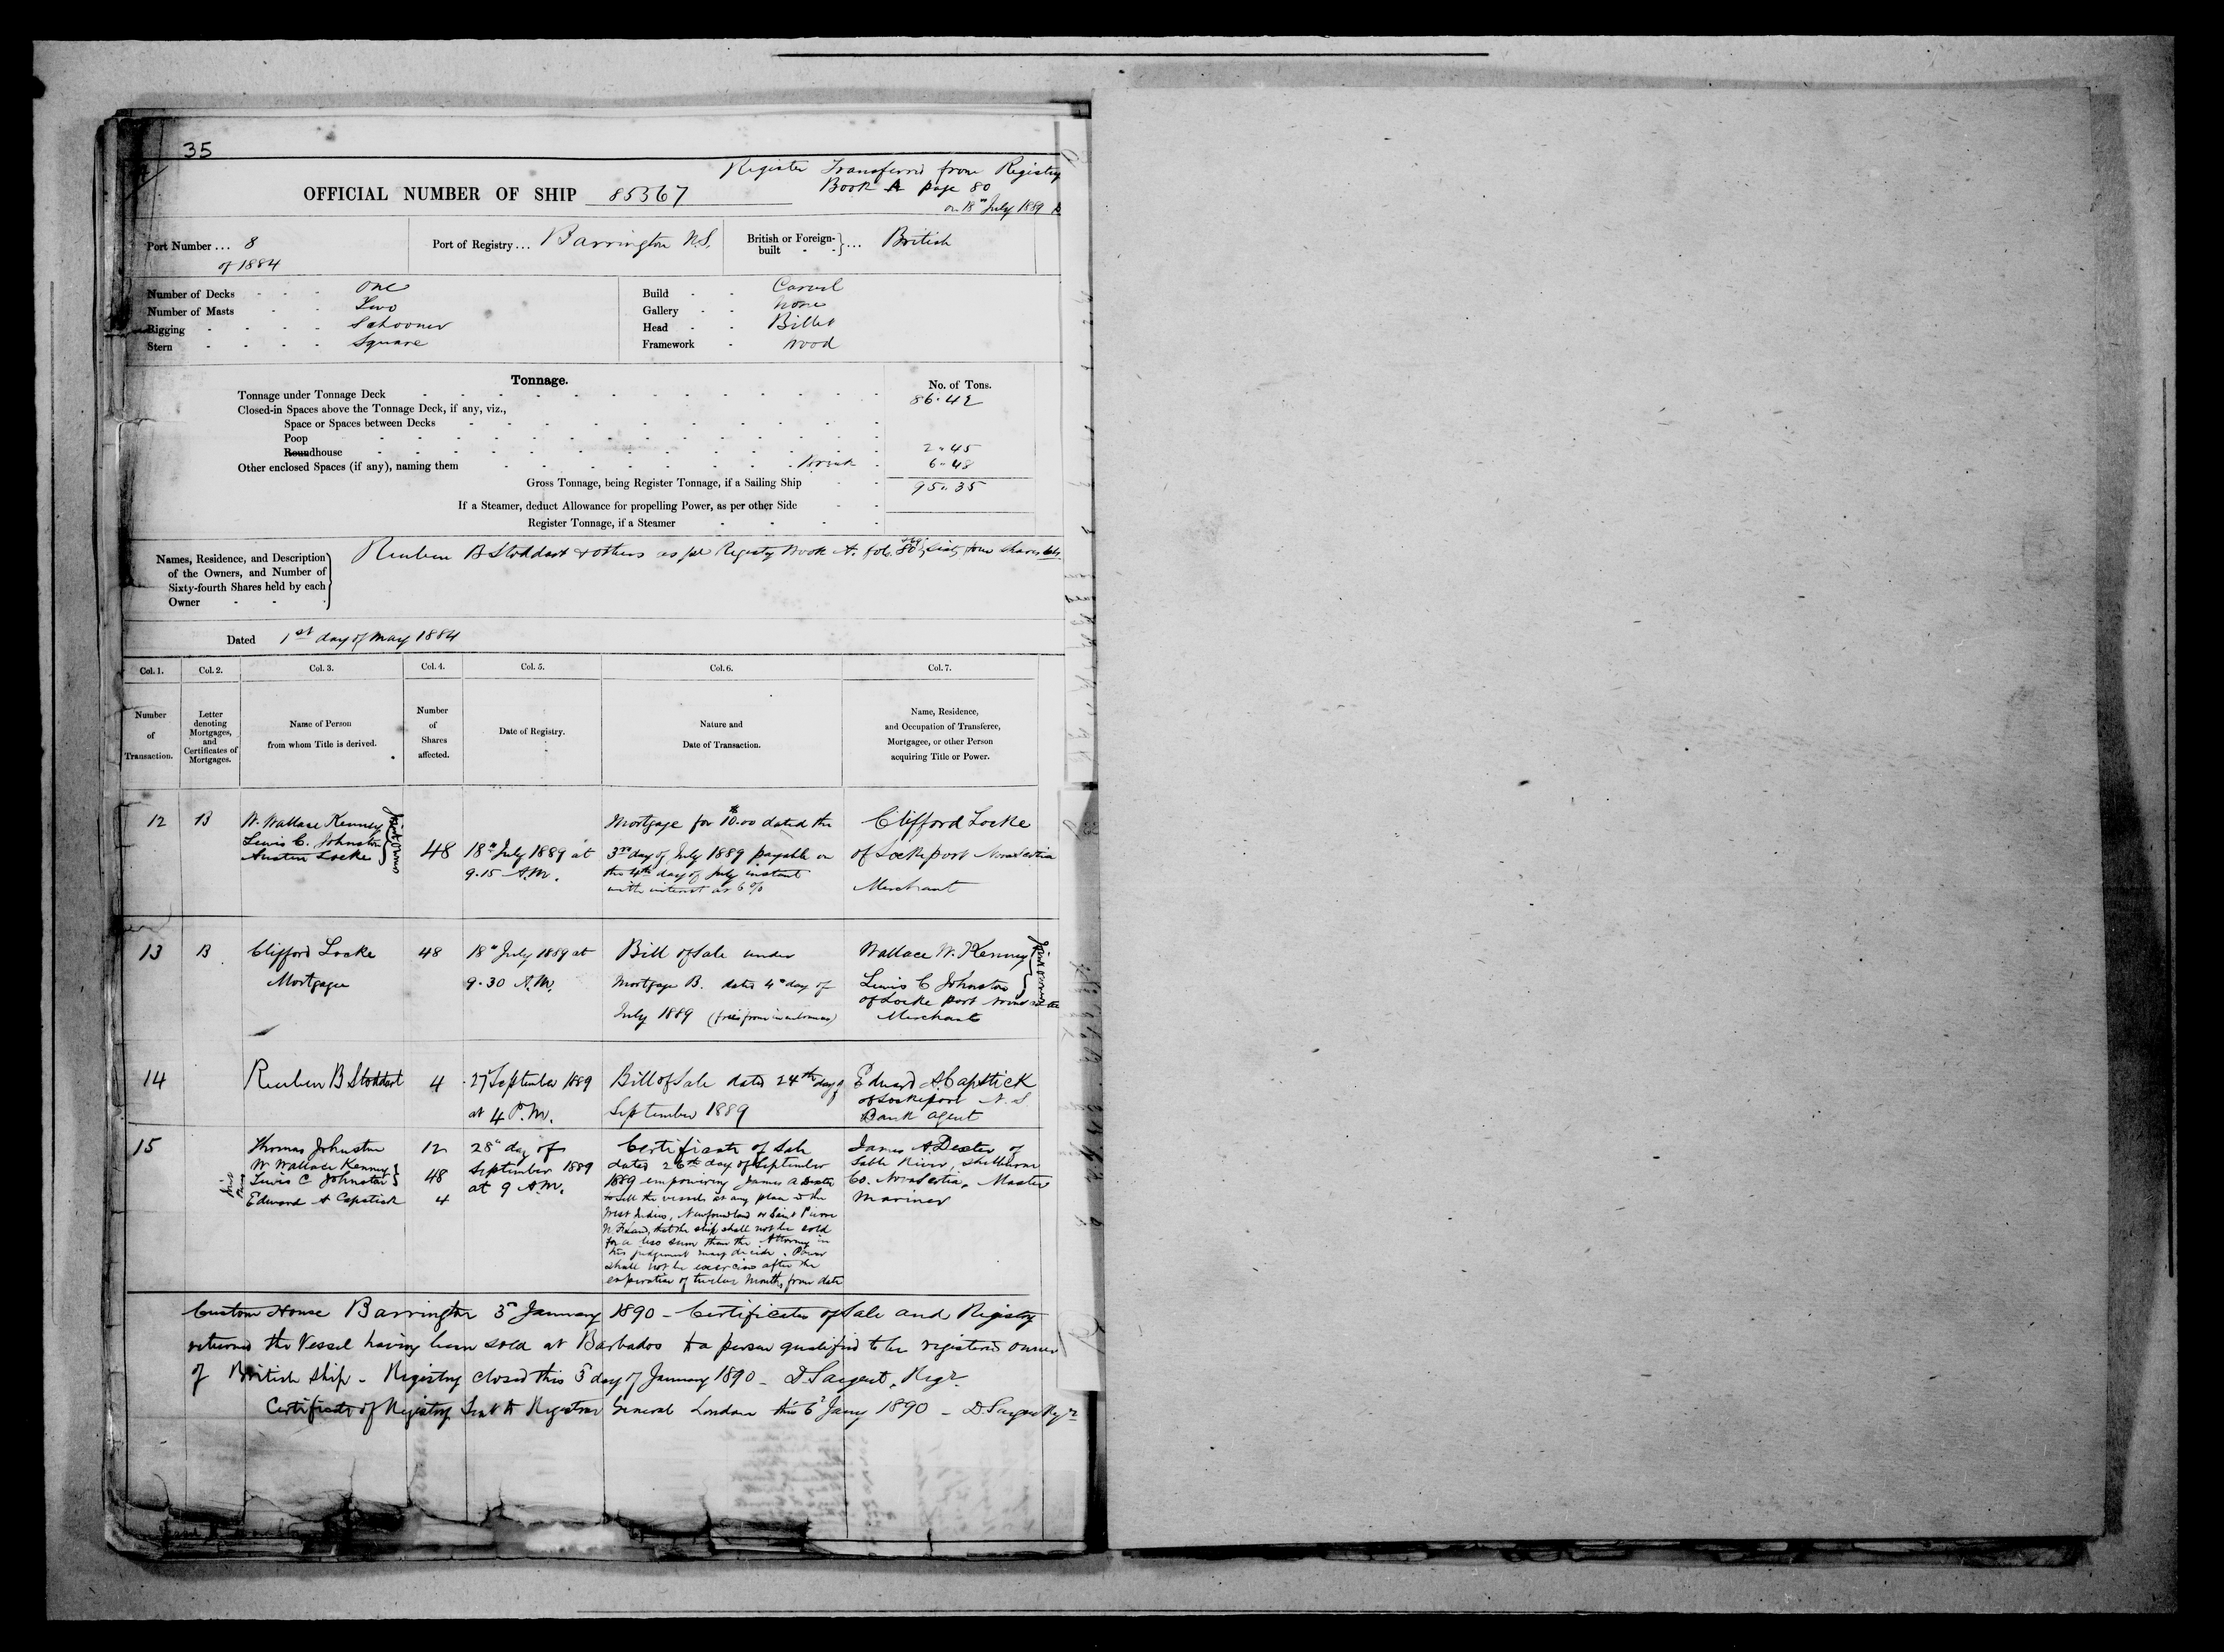 35
Register Transferred from Registry
Book A page 80
on 18th July 1889
OFFICIAL NUMBER OF SHIP 85367
Port Number... 8
of 1884
Port of Registry... Barrington N.S.
British or Foreign-built ... British
Number of Decks One
Number of Masts Two
Rigging Schooner
Stern Square
Build Carvel
Gallery None
Head Billet
Framework Wood
Tonnage.
No. of Tons.
Tonnage under Tonnage Deck 86.42
Closed-in Spaces above the Tonnage Deck, if any, viz.,
Space or Spaces between Decks
Poop
Roundhouse 2.45
Other enclosed Spaces (if any), naming them Break 6.48
Gross Tonnage, being Register Tonnage, if a Sailing Ship 95.35
If a Steamer, deduct Allowance for propelling Power, as per other Side
Register Tonnage, if a Steamer
Names, Residence, and Description
of the Owners, and Number of
Sixty-fourth Shares held by each
Owner
Reuben B Stoddart & others as per Registry Book A. fol. 80, Sixty four shares 64
Dated 1st day of May 1884
Col. 1. Col. 2. Col. 3. Col. 4. Col. 5. Col. 6. Col. 7.
Number of Transaction.
Letter denoting Mortgages, and Certificates of Mortgages.
Name of Person from whom Title is derived.
Number of Shares affected.
Date of Registry.
Nature and Date of Transaction.
Name, Residence, and Occupation of Transferee, Mortgagee, or other Person acquiring Title or Power.
12
B
W. Wallace Kenney
Lewis C. Johnston
Austen Locke
Joint Owners
48
18th July 1889 at
9.15 A.M.
Mortgage for $10.00 dated the
3rd day of July 1889 payable on
the 4th day of July instant
with interest at 6%
Clifford Locke
of Lockeport Nova Scotia
Merchant
13
B
Clifford Locke
Mortgagee
48
18th July 1889 at
9.30 A.M.
Bill of Sale under
Mortgage B. dated 4th day of
July 1889 (free from incumbrances)
Wallace W. Kenney
Lewis C Johnston
of Locke port Nova Scotia
Merchants
Joint Owners
14
Reuben B Stoddart
4
27 September 1889
at 4 P.M.
Bill of Sale dated 24th day of
September 1889
Edward A Capstick
of Lockeport N.S.
Bank agent
15
Thomas Johnston
W Wallace Kenney
Lewis C Johnston
Edward A Capstick
12
48
4
28th day of
September 1889
at 9 A.M.
Certificate of Sale
dated 26th day of September
1889 empowering James A Dexter
to sell the vessel at any place in the
West Indies, Newfoundland or Saint Pierre
that the ship shall not be sold
for a less sum than the Attorney in
his judgement may decide. Power
shall not be exercised after the
expiration of twelve months from date
James A Dexter of
Sable River, Shelburne
Co. Nova Scotia, Master
Mariner
Custom House Barrington 3rd January 1890 - Certificates of Sale and Registry
returned the Vessel having been sold at Barbados to a person qualified to be registered owner
of British ship - Registry closed this 3rd day of January 1890 - D. Sargent, Regr.
Certificate of Registry Sent to Registrar General London this 6th Jany 1890 - D. Sargent Regr